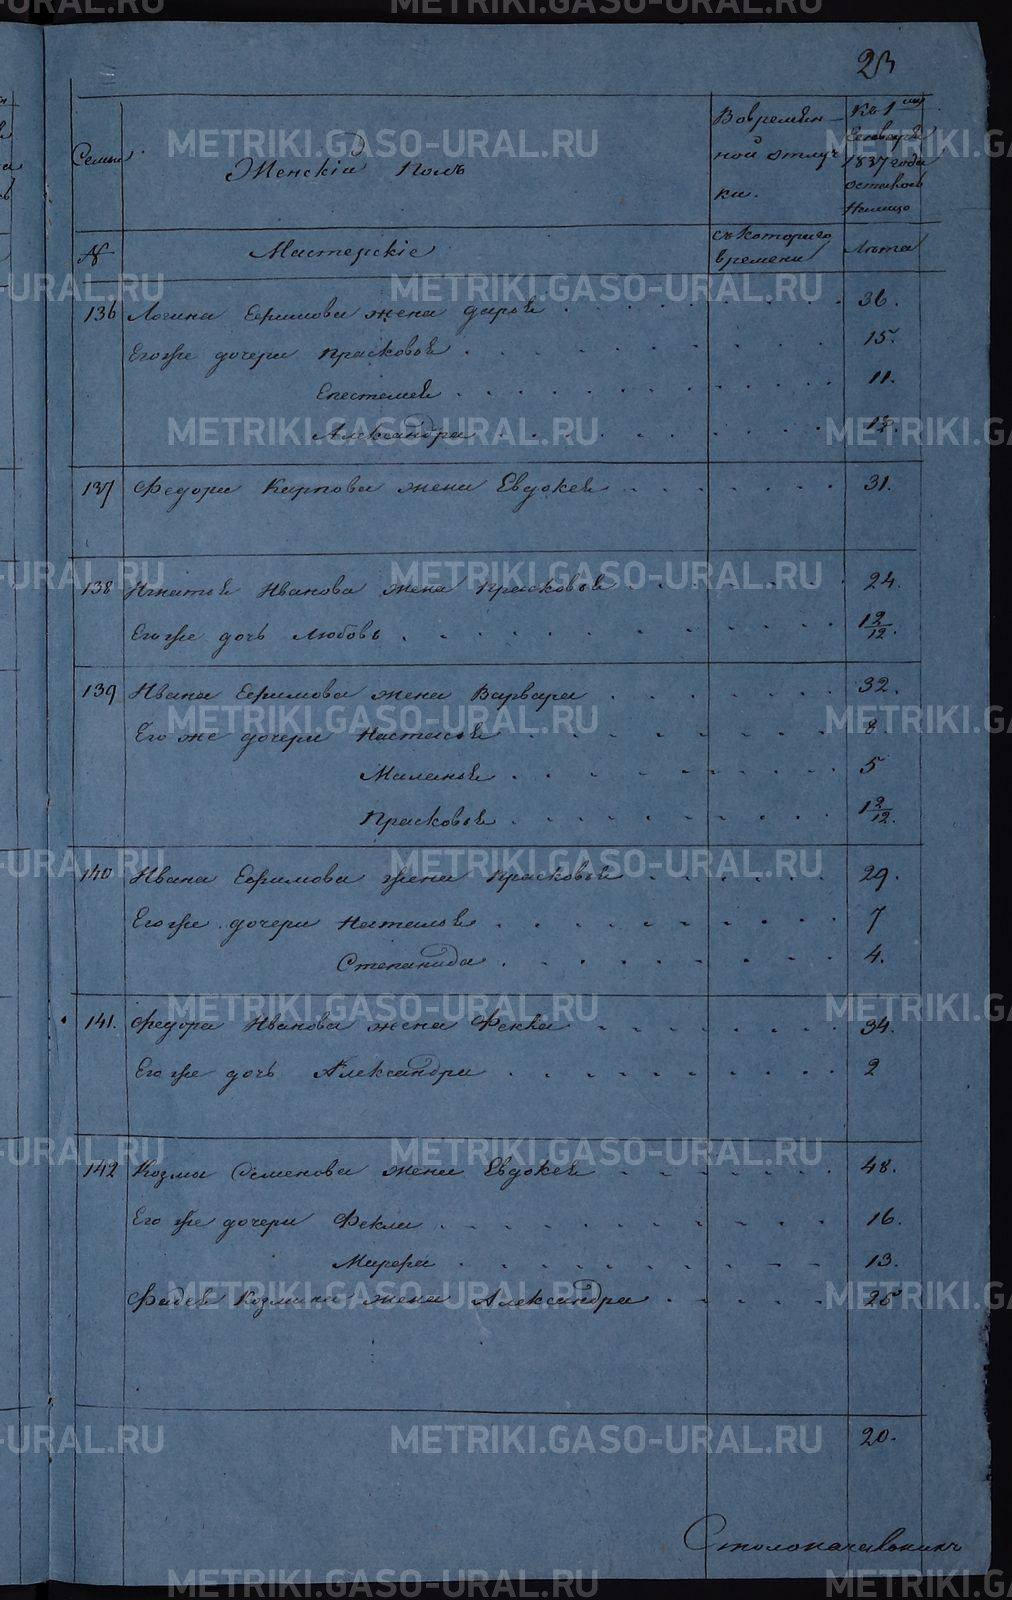 23
Семьи
Женскій Полъ
Вовремен-
ной отлуч
ки.
Къ 1му
Генваря
1837 года
осталось
налицо
№
Мастерскіе
съ котораго
времени
Лѣта
136 Логина Ефимова жена Дарья 36.
Его же дочери Прасковья 15.
Епестемея 11.
Александра
137 Федора Карпова жена Евдокея 31.
138 Игнатья Иванова жена Прасковья 24.
Его же дочь Любовь 1 9/12.
139 Ивана Ефимова жена Варвара 32.
Его же дочери Настасья 8.
Маланья 5
Прасковья 1 9/12.
140 Ивана Ефимова жена Прасковья 29.
Его же дочери Наталья 7
Степанида 4.
141. Федора Иванова жена Фекла 34.
Его же дочь Александра 2
142 Козмы Семенова жена Евдокея 48.
Его же дочери Фекла 16.
13.
Фадея Козмина жена Александра 25
20.
Столоначальникъ
METRIKI.GASO-URAL.RU